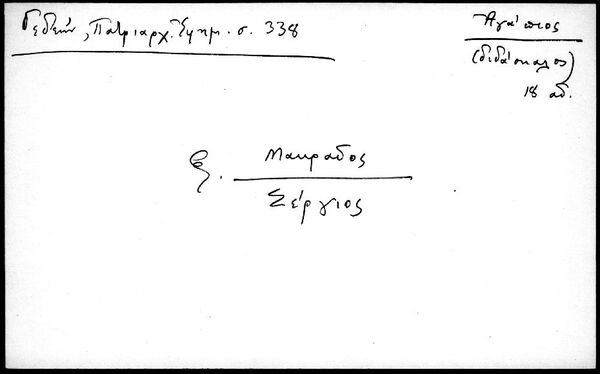 Γεδεών, Πατριαρχ. Ἐφημ. σ. 338
Ἀγάπιος
(διδάσκαλος)
18 αἰ.
Μακραῖος
Σέργιος